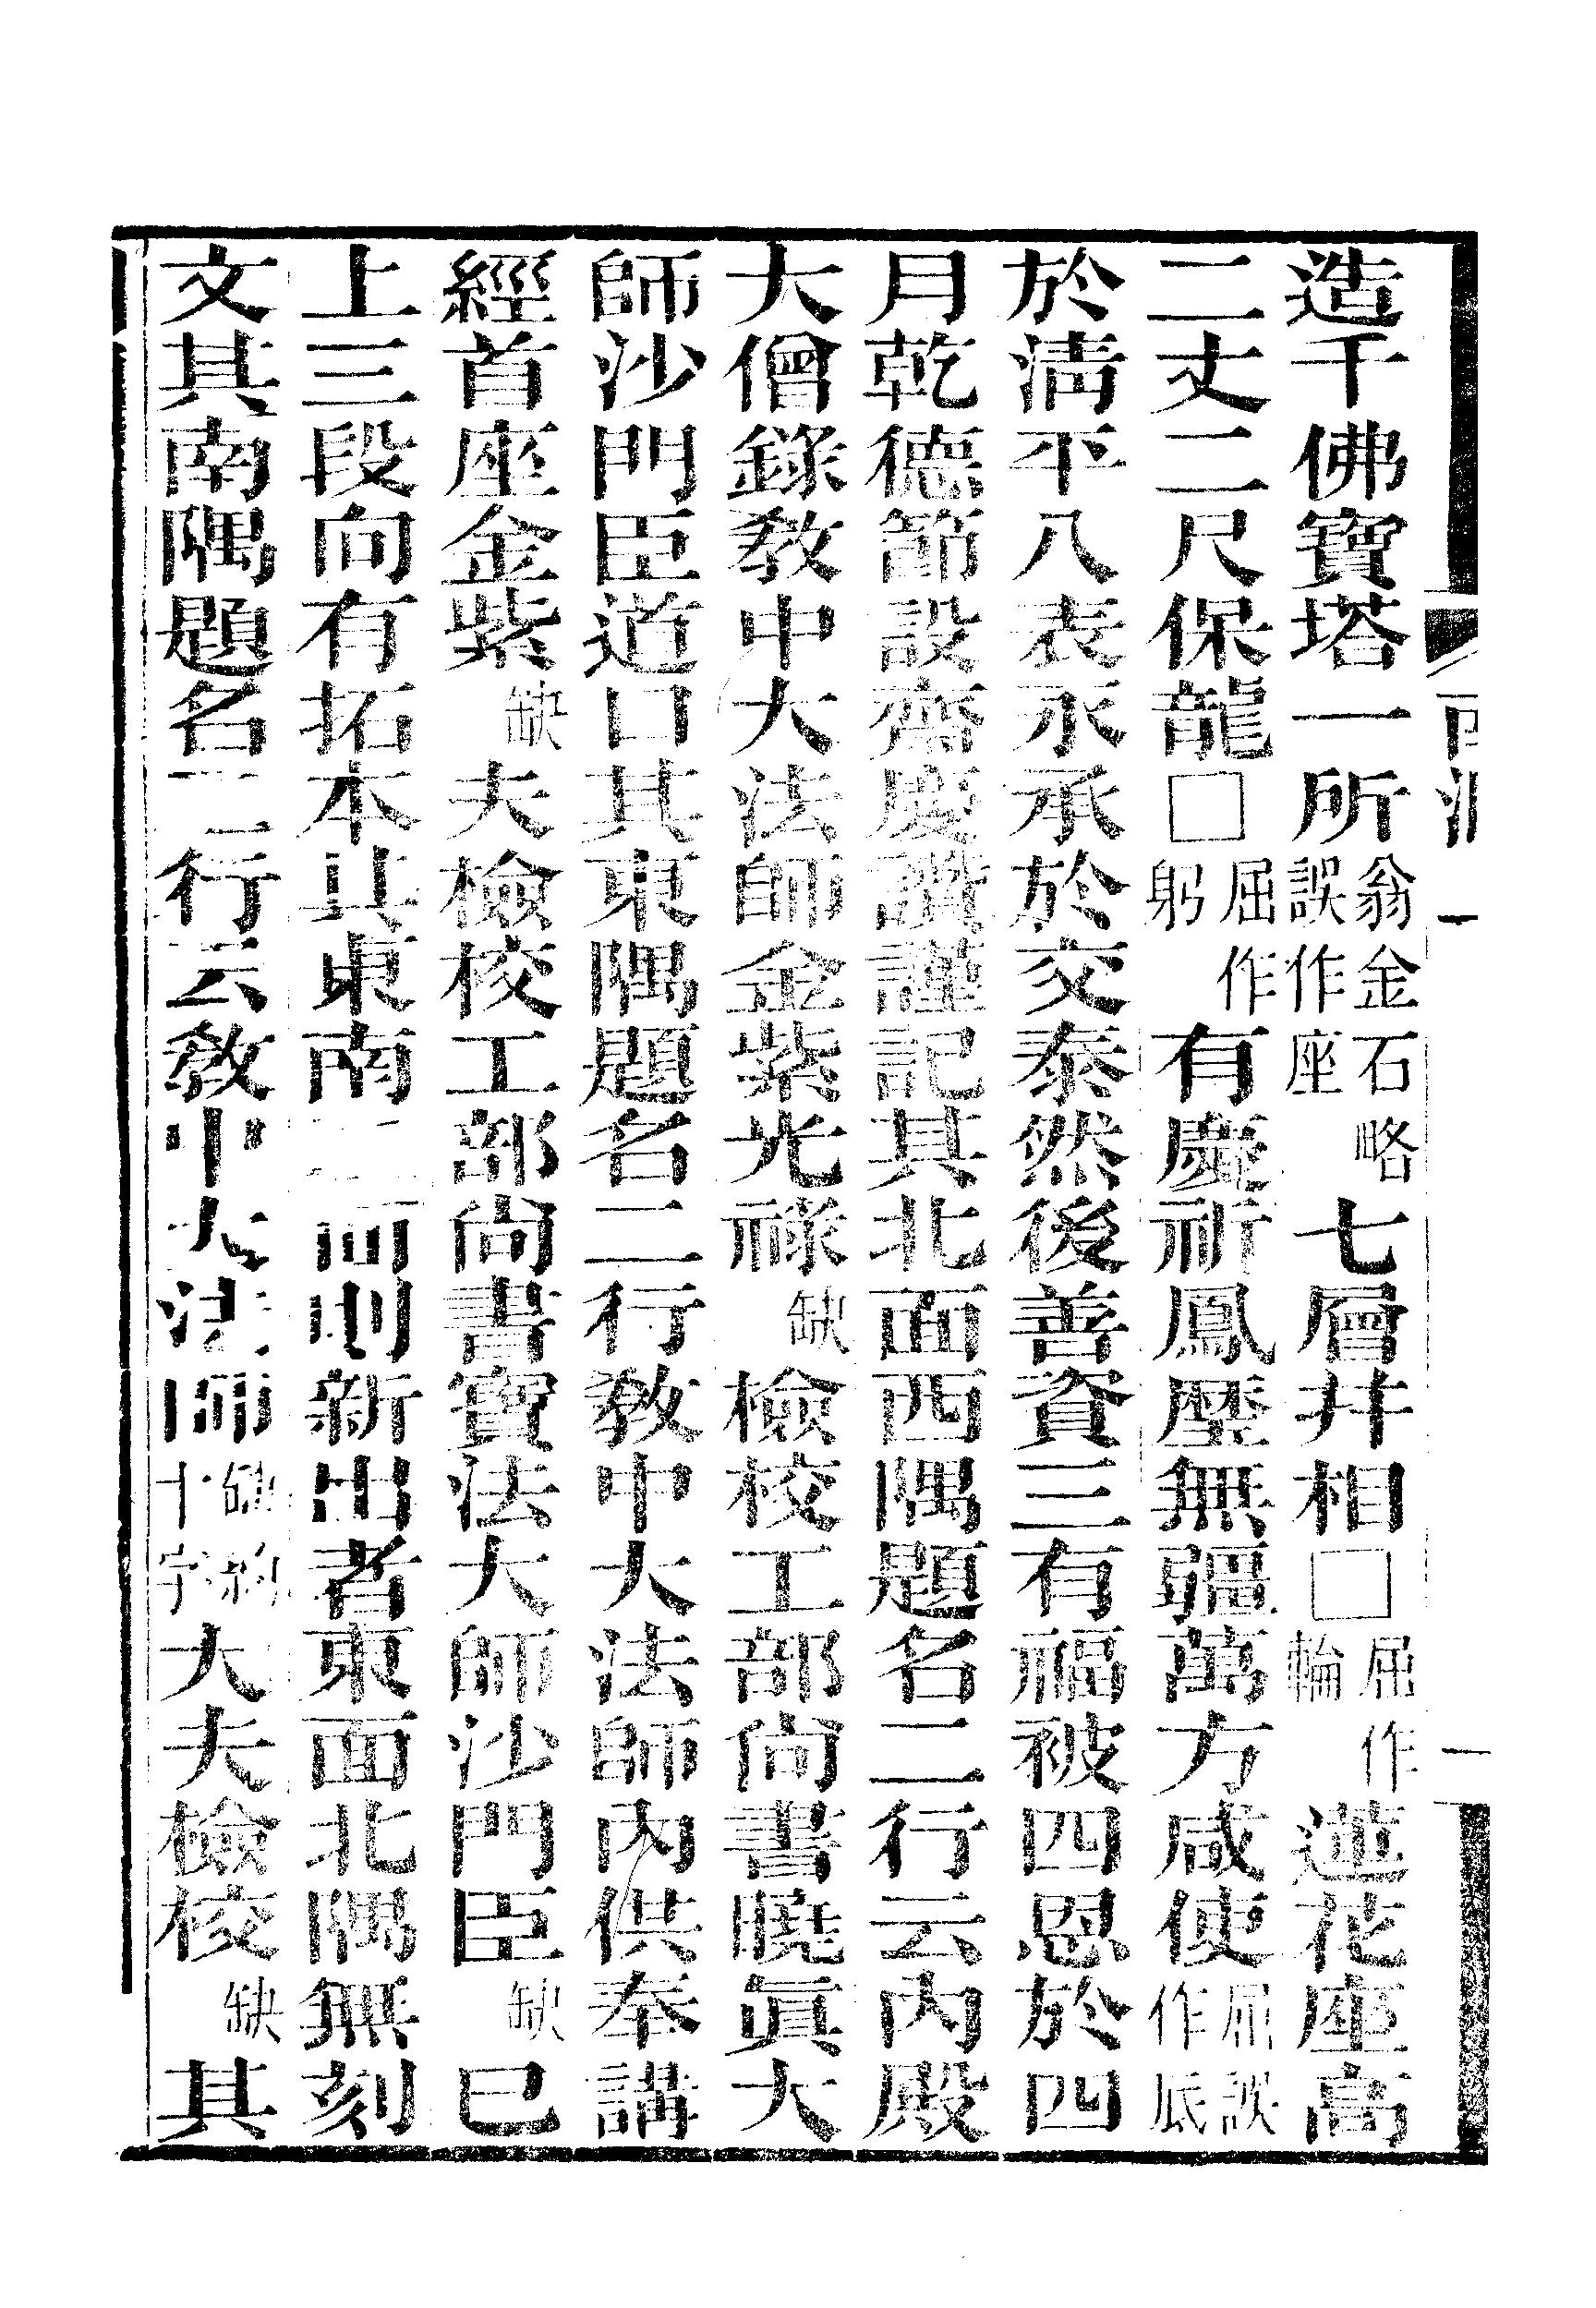 造千佛寶塔一所翁金石略誤作座七層并相□屈作輪蓮花座高
二丈二尺保龍□屈作躬有慶祈鳳壓無疆萬方咸使屈誤作底
於淸平八表永承於交泰然後善資三有福被四恩於四
月乾德節設齋慶讚謹記其北面西隅題名二行云內殿
大僧錄敎中大法師金紫光祿缺檢校工部尙書曉眞大
師沙門臣道口其東隅題名二行敎中大法師內供奉講
經首座金紫缺夫檢校工部尙書寶法大師沙門臣缺已
上三段向有拓本其東南二面則新出者東面北隅無刻
文其南隅題名二行云敎中大法師缺約十字大夫檢校缺其